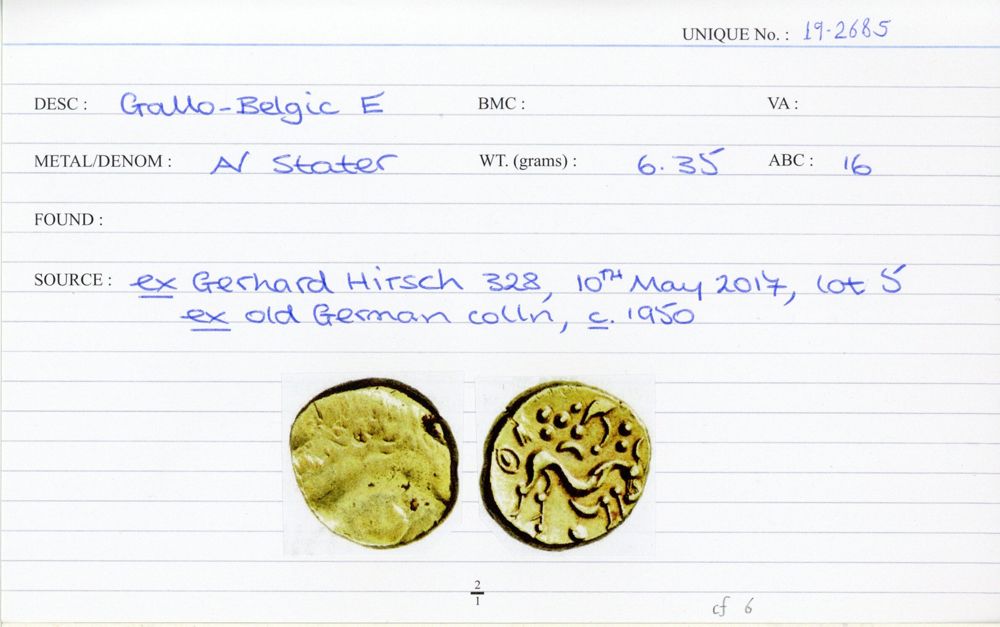 UNIQUE No. : 19-2685
DESC : Gallo-Belgic E BMC : VA :
METAL/DENOM : AV Stater WT. (grams) : 6.35 ABC : 16
FOUND :
SOURCE : ex Gerhard Hirsch 328, 10TH May 2017, lot 5
ex old German colln, c. 1950
2
1
cf 6